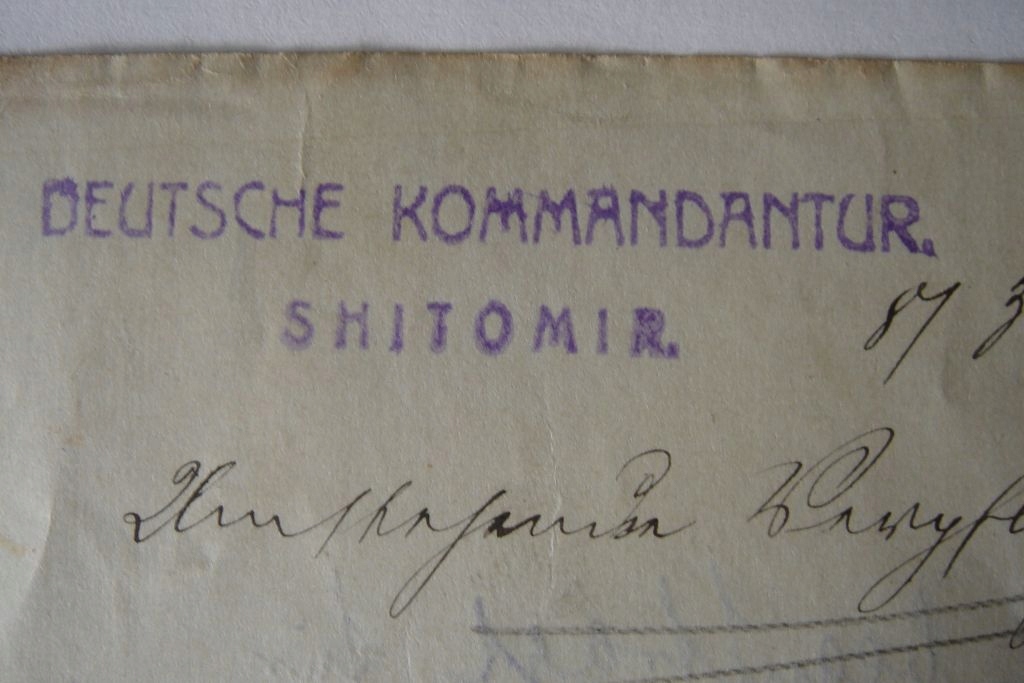 DEUTSCHE KOMMANDANTUR.
SHITOMIR.
8/ 3
Umstehende Verpfl